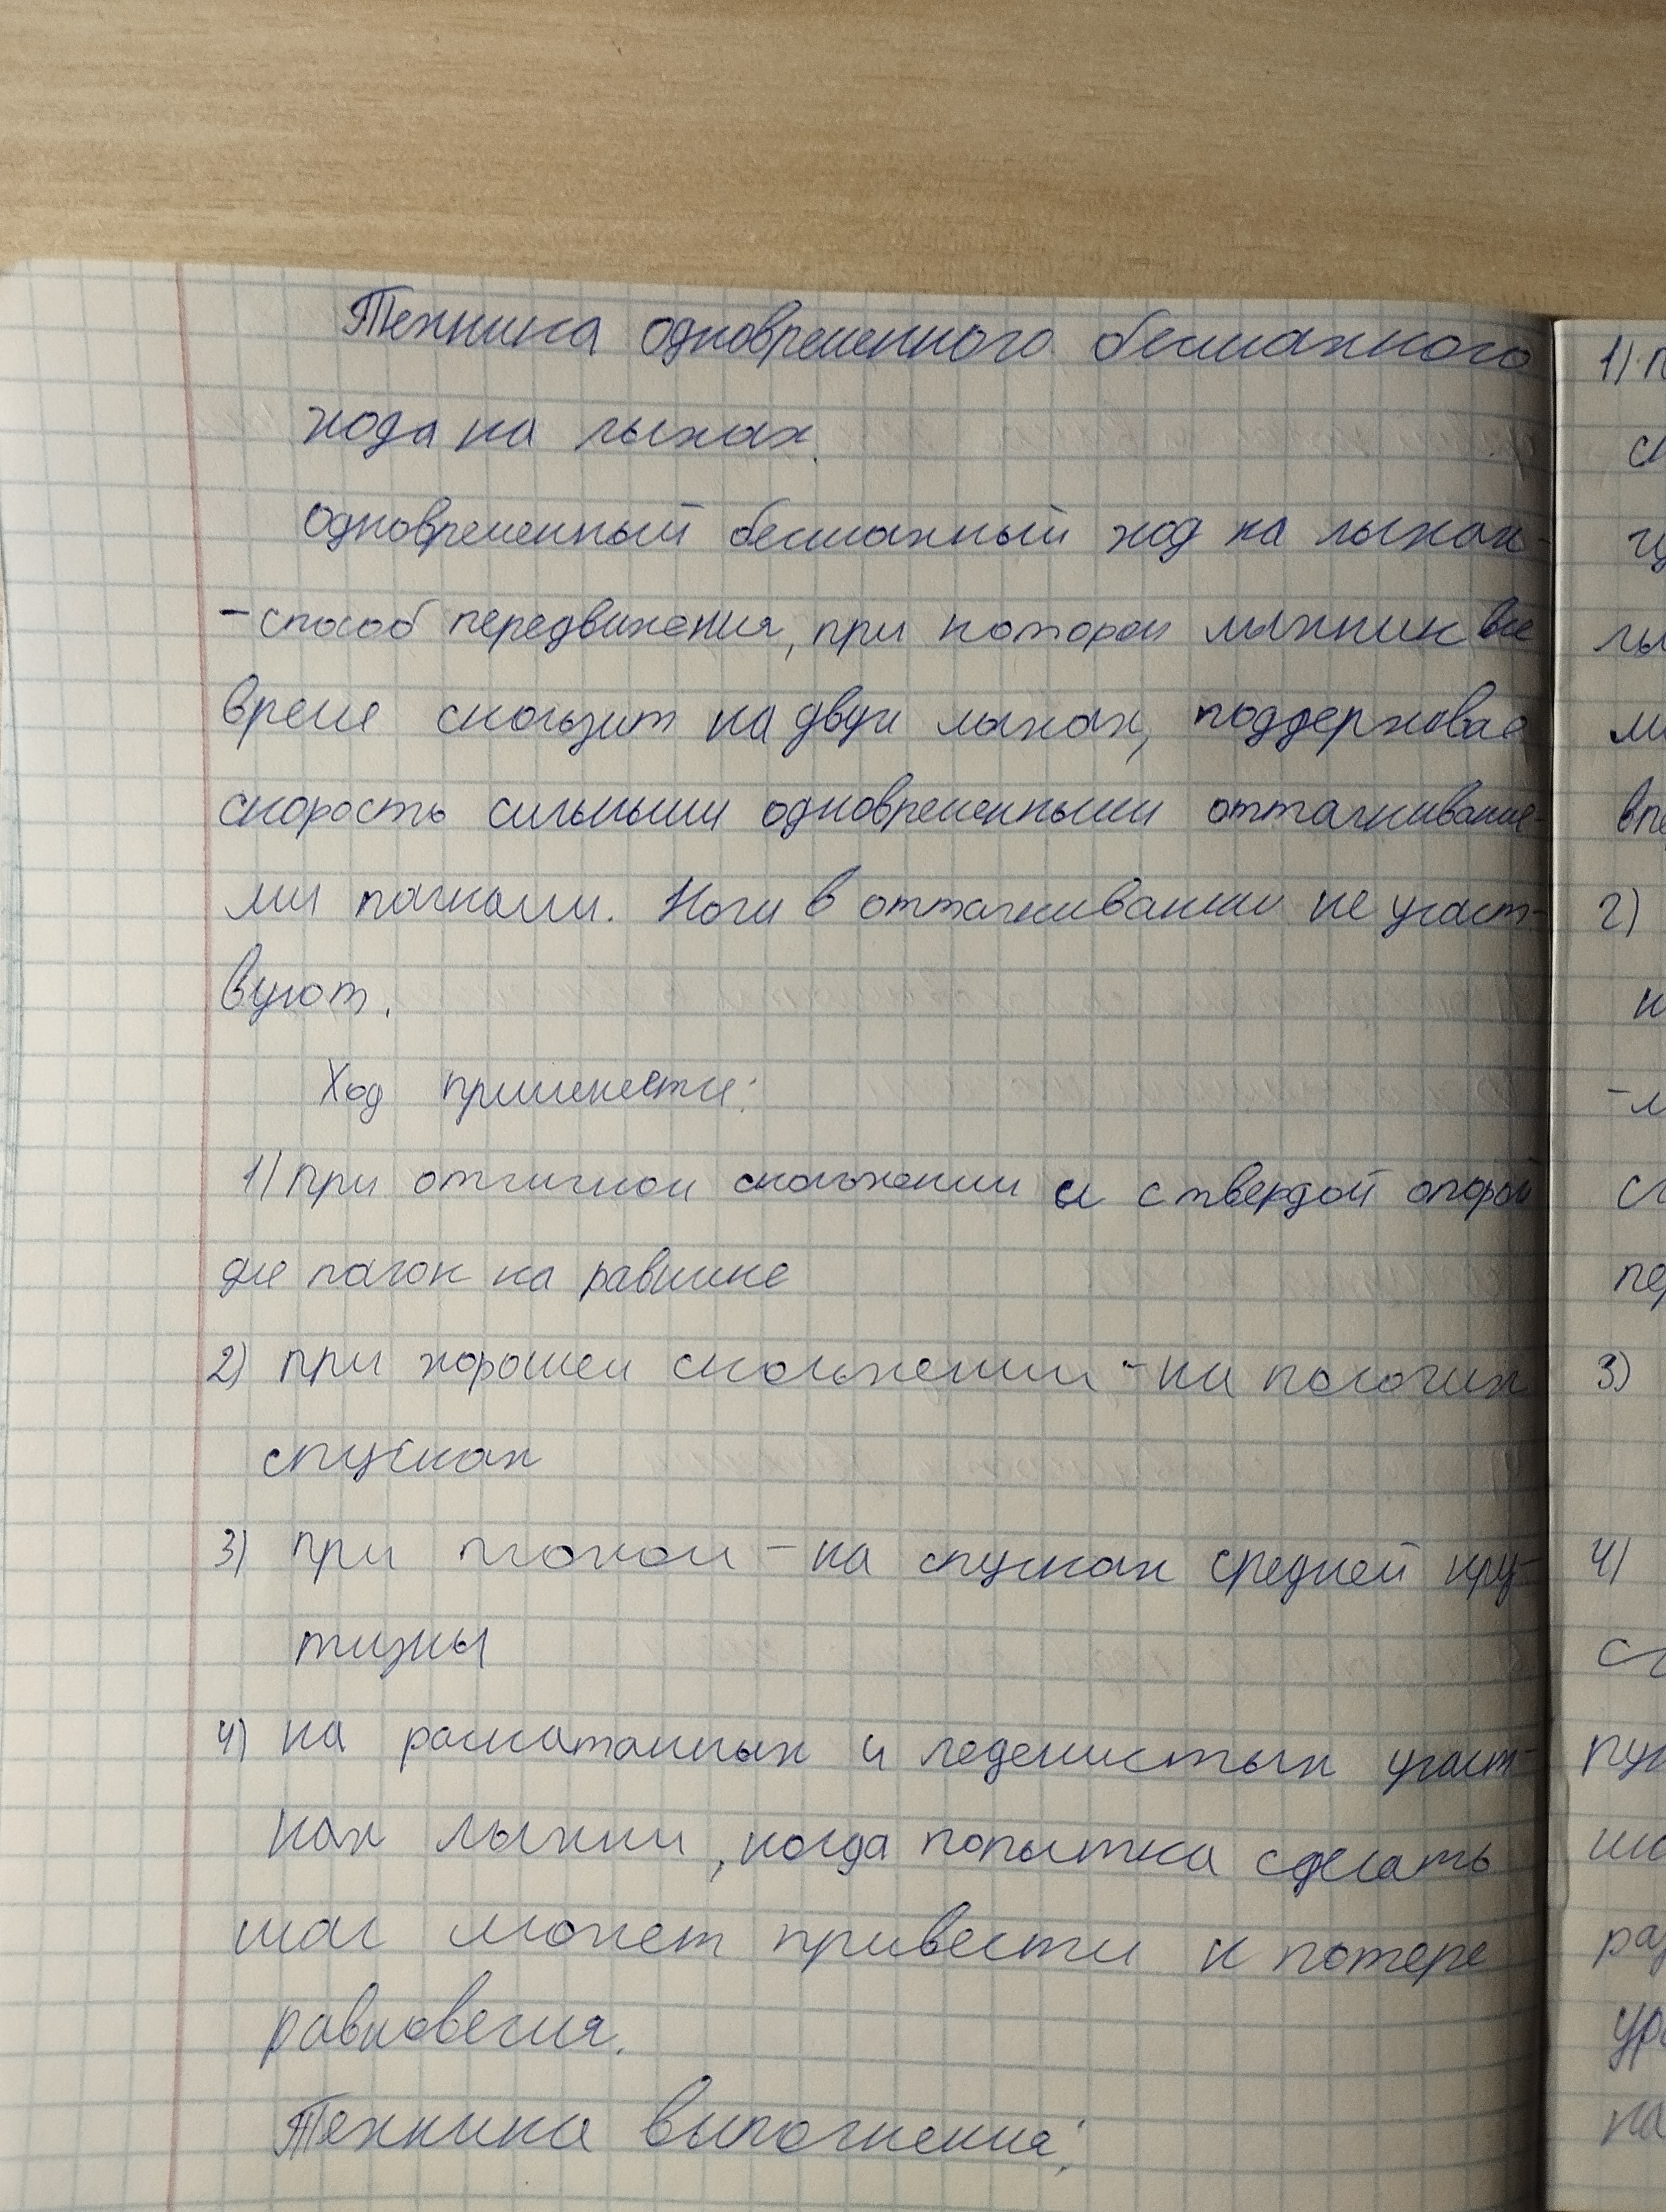 Техника одновременного бесшажного
хода на лыжах.
Одновременный бесшажный ход на лыжах-
-способ передвижения, при котором лыжник все
время скользит на двух лыжах, поддерживая
скорость сильными одновременными отталкивание-
ми палками. Ноги в отталкивании не участ-
вуют.
Ход применяется:
1) при отличном скольжении и с твердой опорой
для палок на равнине
2) при хорошем скольжении - на пологих
спусках
3) при плохом - на спусках средней кру-
тизны
4) на раскатанных и леденистых участ-
ках лыжни, когда попытка сделать
шаг может привести к потере
равновесия.
Техника выполнения:
1)
2)
3)
4)